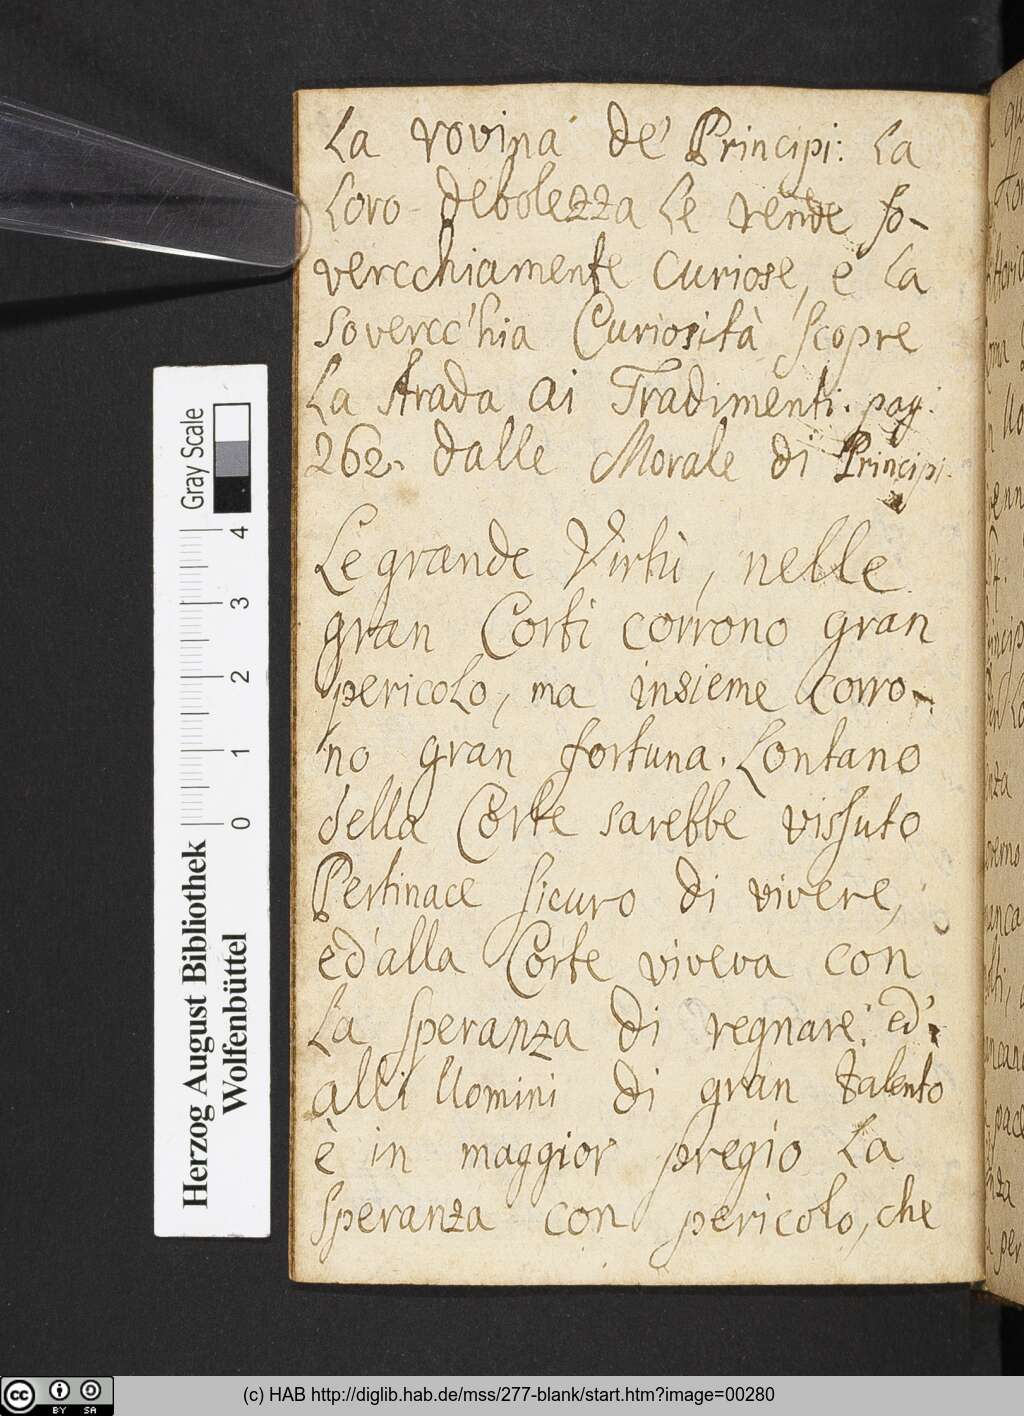 La rovina de' Principi: La
Loro debolezza Le rende so-
vercchiamente Curiose, e La
sovercc'hia Curiosità scopre
La strada ai Tradimenti. pag.
262. dalle Morale di Principi.
Le grande Virtù, nelle
gran Corti corrono gran
pericolo, ma insieme corro-
no gran fortuna. Lontano
della Corte sarebbe vissuto
Pertinace sicuro di vivere,
ed'alla Corte viveva con
La speranza di regnare: ed'
alli Uomini di gran talento
è in maggior pregio La
speranza con pericolo, che
Gray Scale
4
3
2
1
0
Herzog August Bibliothek
Wolfenbüttel
cc BY SA
(c) HAB http://diglib.hab.de/mss/277-blank/start.htm?image=00280